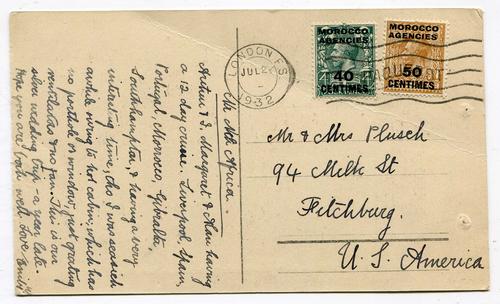 MOROCCO
AGENCIES
40
CENTIMES
MOROCCO
AGENCIES
50
CENTIMES
LONDON F.S.
JUL 2
1932
PAQUEBOT
Mr & Mrs Plusch
94 Milk St
Fitchburg.
U. S. America
Nr. Nth. Africa.
& I, Margaret & Alan having
a 12 day cruise. Liverpool, Spain,
Portugal, Morocco, Gibraltar,
Southhampton, & having a very
interesting time, tho I was seasick
awhile owing to hot cabin, which has
no porthole or window, just grating
ventilators & no fan. This is our
silver wedding trip - a year late.
Hope you are both well. Love